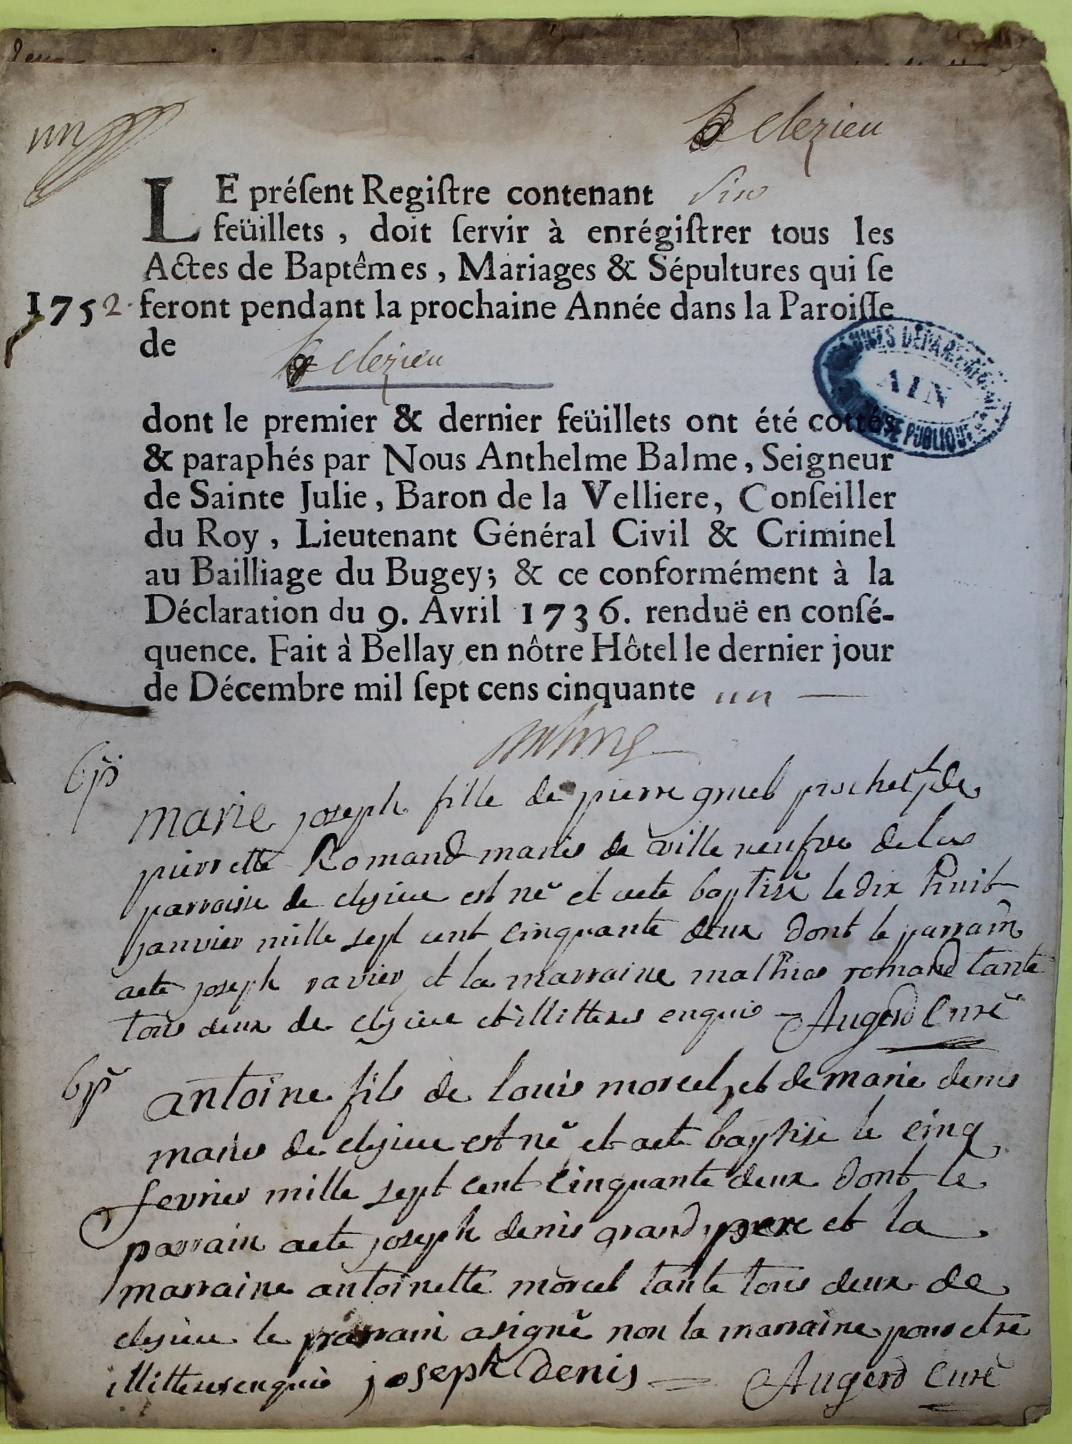 un
clezieu
LE préſent Regiſtre contenant Six
feüillets, doit ſervir à enrégiſtrer tous les
Actes de Baptêmes, Mariages & Sépultures qui ſe
1752. feront pendant la prochaine Année dans la Paroiſſe
de clezieu
dont le premier & dernier feüillets ont été cottés
& paraphés par Nous Anthelme Balme, Seigneur
de Sainte Julie, Baron de la Velliere, Conſeiller
du Roy, Lieutenant Général Civil & Criminel
au Bailliage du Bugey; & ce conformément à la
Déclaration du 9. Avril 1736. renduë en conſé-
quence. Fait à Bellay en nôtre Hôtel le dernier jour
de Décembre mil ſept cens cinquante un
AIN
marie joseph fille de pierre gruel et de
pierrette Romand mariés de ville neufve de la
parroisse de clezieu est né et aeté baptisé le dix huit
janvier mille sept cent cinquante deux dont le parrain
aeté joseph ravier et la marraine mathias romand tante
tous deux de clezieu et illitteres enquis Augerd Curé
antoine fils de louis morcel, et de marie denis
mariés de clezieu est né et aeté baptisé le cinq
fevrier mille sept cent cinquante deux dont le
parrain aeté joseph denis grand pere et la
marraine antoinette morcel tante tous deux de
clezieu le parrain asigné non la marraine pour etre
illitteres enquis joseph Denis Augerd Curé